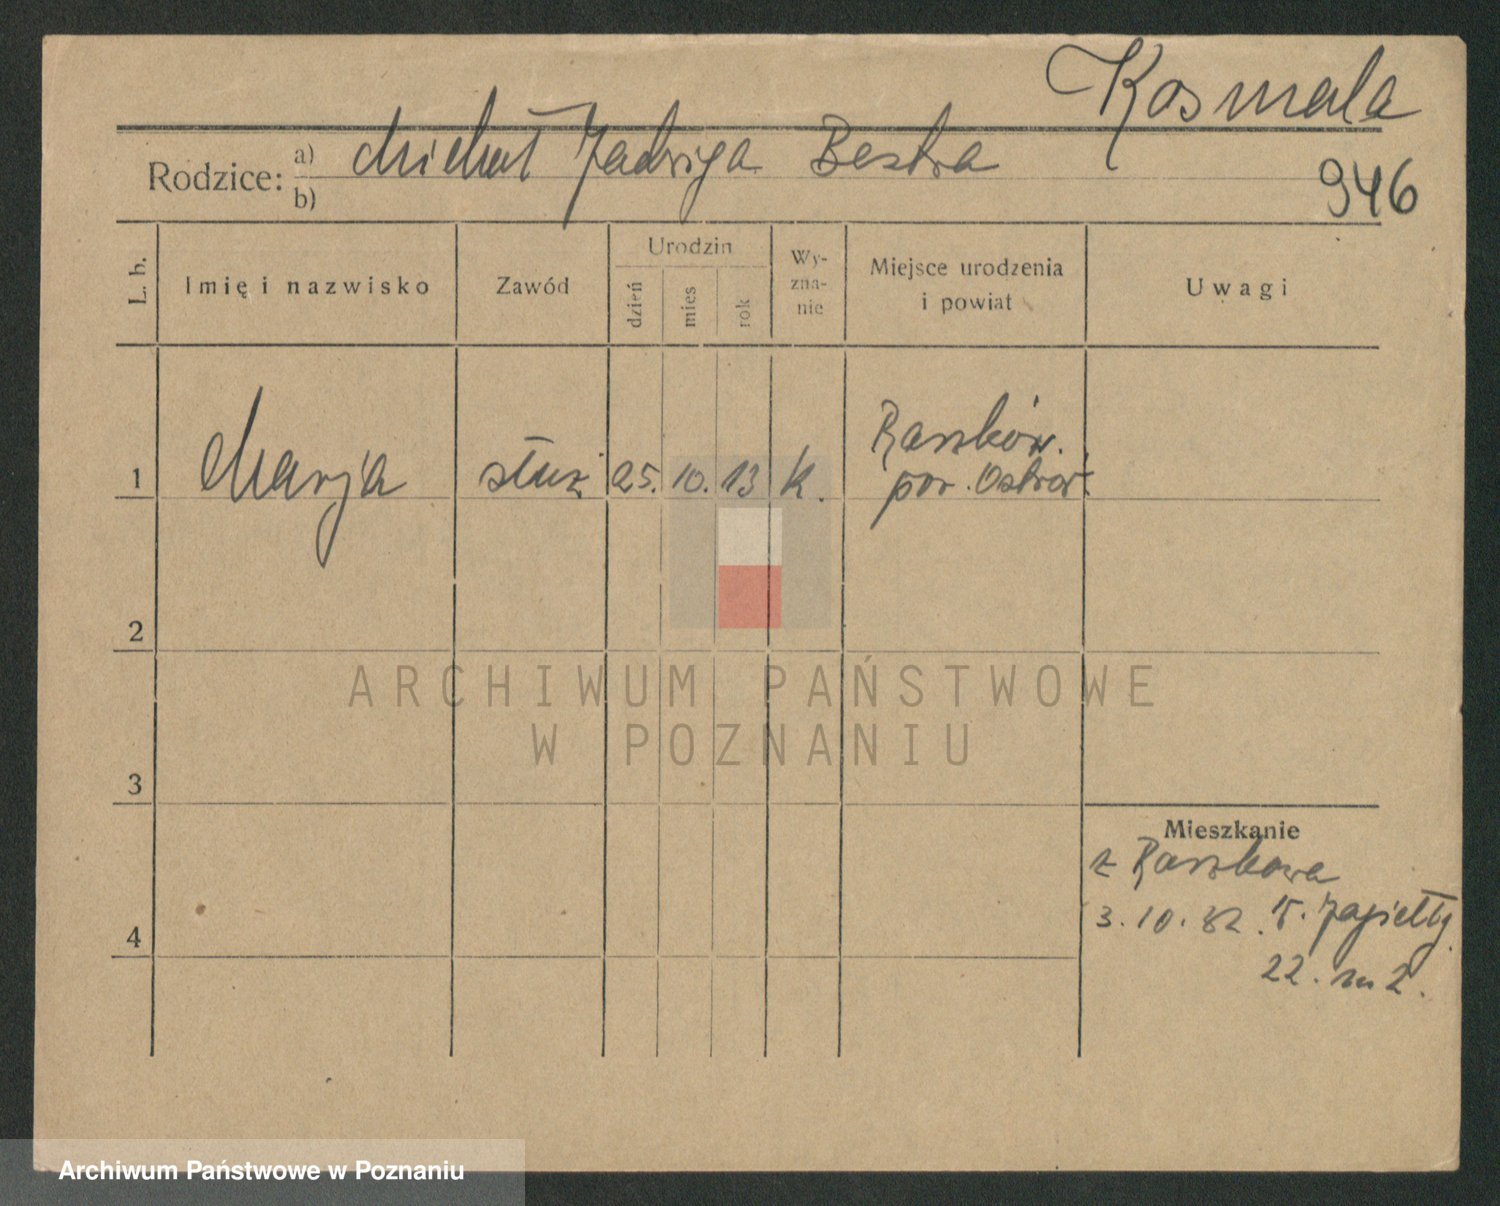 Kosmala
Rodzice: a) Michał Jadwiga Bestra
b)
946
L. b.
Imię i nazwisko
Zawód
Urodzin
dzień
mies
rok
Wy-
zna-
nie
Miejsce urodzenia
i powiat
Uwagi
1 Marja służ 25. 10. 13 k. Raszków.
pow. Ostrów.
2
3
4
Mieszkanie
z Raszkowa
3. 10. 32. Jagiełły
22. m 2.
ARCHIWUM PAŃSTWOWE
W POZNANIU
Archiwum Państwowe w Poznaniu